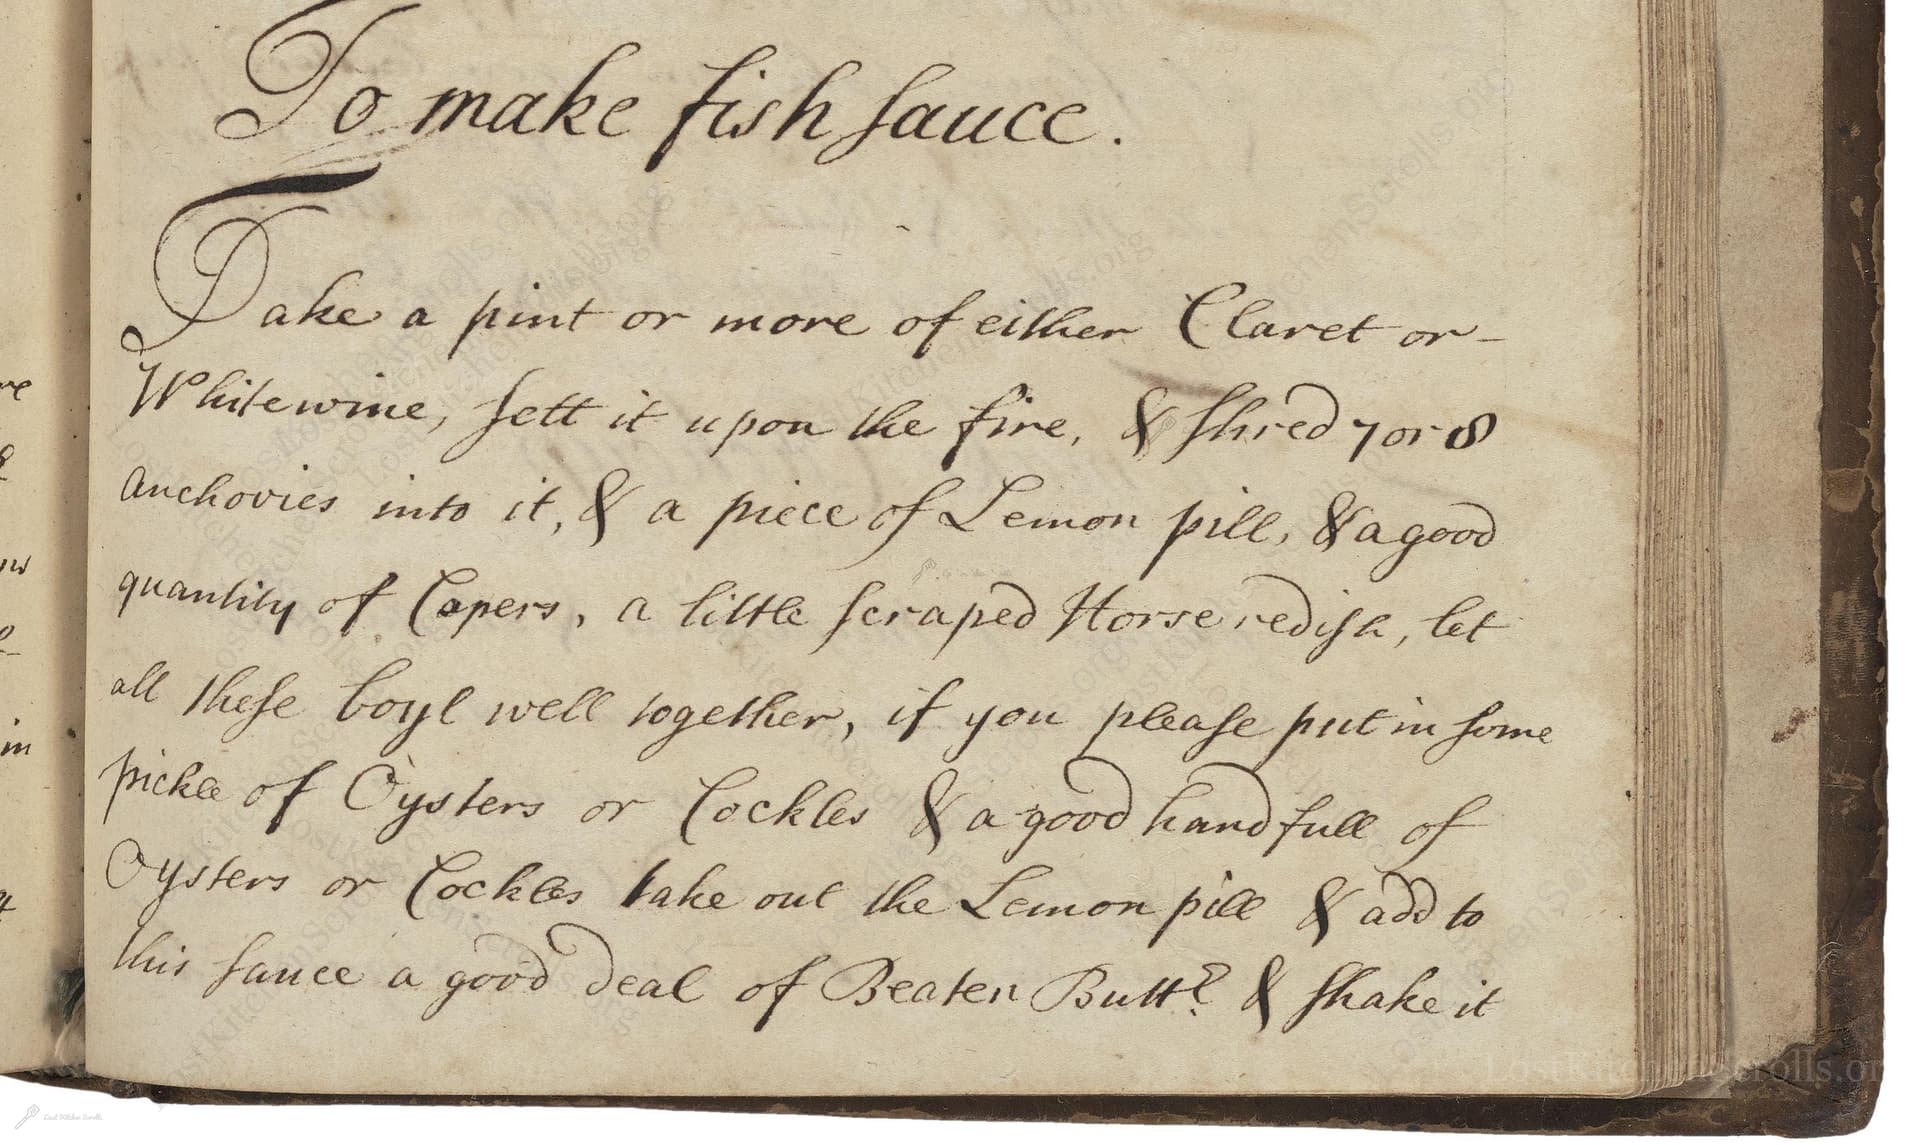 To make fish sauce.
Take a pint or more of either Claret or
Whitewine, sett it upon the fire, & shred 7 or 8
anchovies into it, & a piece of Lemon pill, & a good
quantity of Capers, a little scraped Horse redish, let
all these boyl well together, if you please put in some
pickle of Oysters or Cockles & a good hand full of
Oysters or Cockles take out the Lemon pill & add to
this sauce a good deal of Beaten Buttr & shake it
in
LostKitchenScrolls.or
Lost Kitchen Scrolls